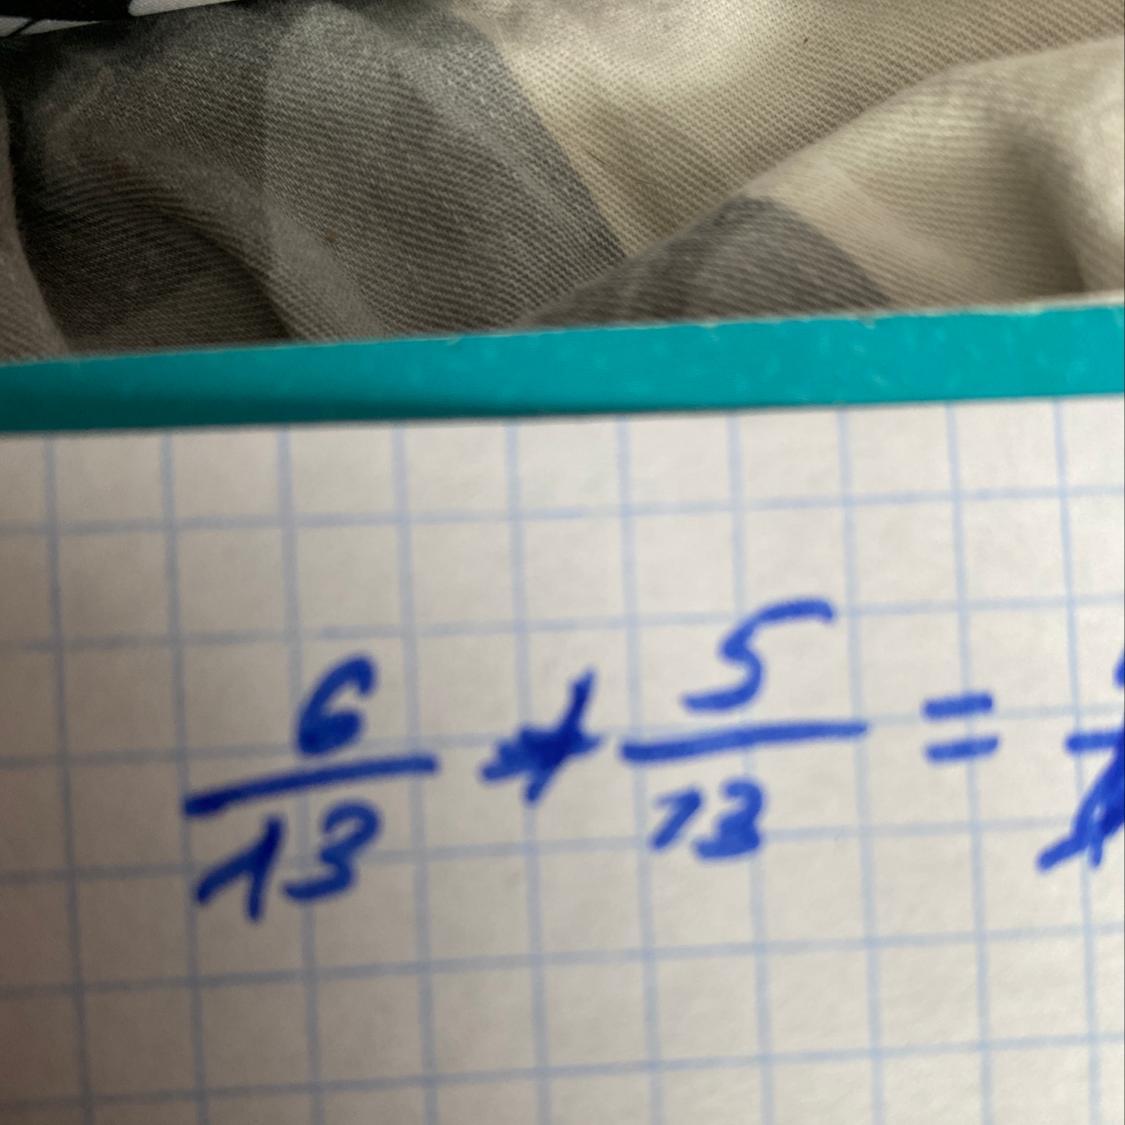 6/13 + 5/13 =